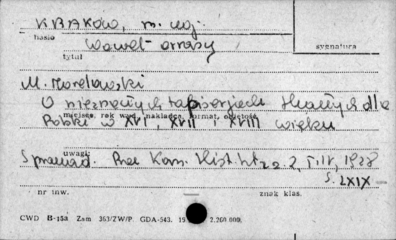 KRAKÓW, m. woj.
hasło
Wawel - arrasy
sygnatura
tytuł
M. Morelowski
O nieznanych tapiserjach tkanych dla
miejsce, rok wyd., nakładca, format, objętość
Polski w XVI, XVII i XVIII wieku
uwagi:
Sprawozd. Prac Kom. Hist. Szt. z. 2, t. IV, 1928
s. LXIX
nr inw.
znak klas.
CWD B-153 Zam 363/ZW/P. GDA-543. 19 2.200 000.